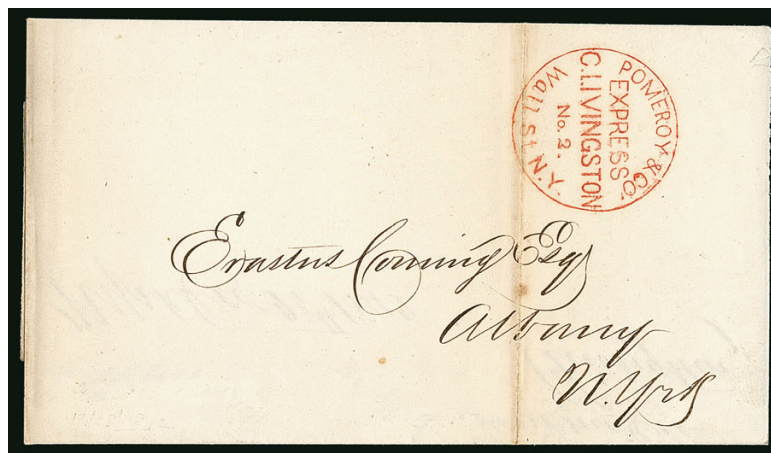 POMEROY & CO.
EXPRESS
C. LIVINGSTON
No. 2.
Wall St. N.Y.
Erastus Corning Esq
Albany
N. York